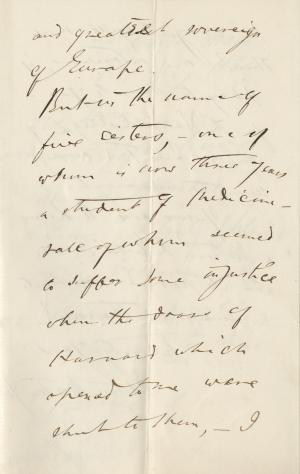 and greatest sovereign
of Europe.
But in the name of
five sisters, – one of
whom is now three years
a student of Medicine –
& all of whom seemed
to suffer some injustice
when the doors of
Harvard which
opened to me were
shut to them, – I